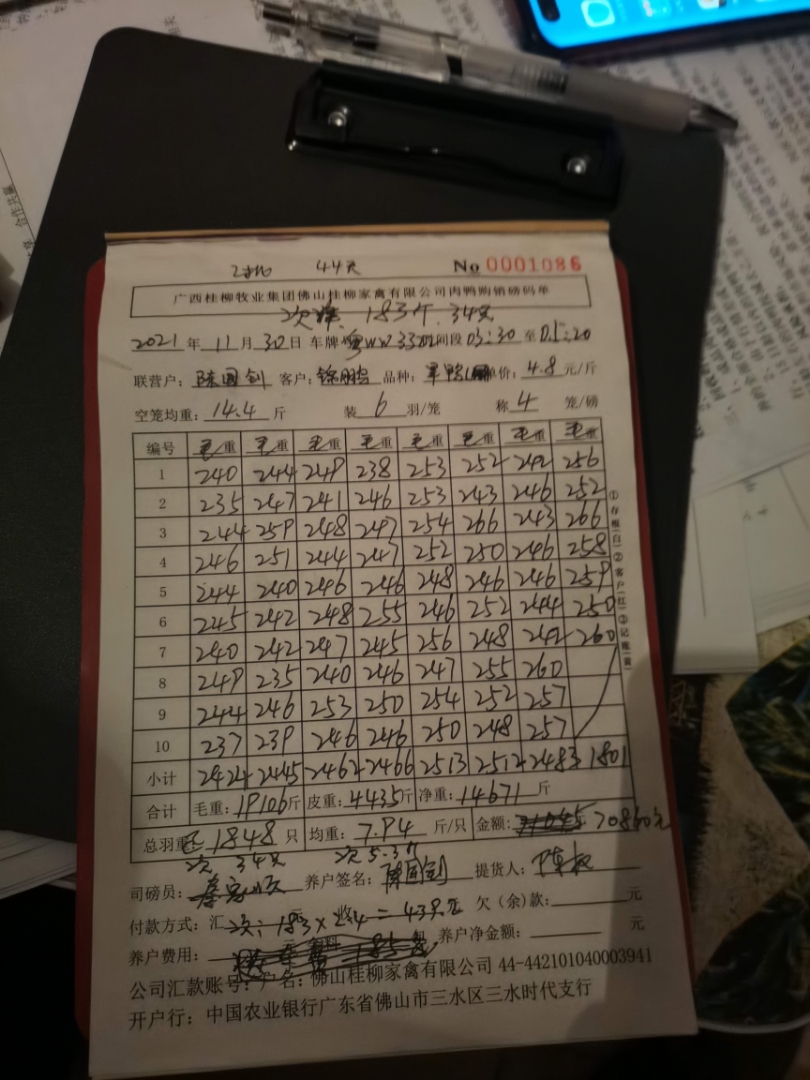 44天 No 0001086
广西桂柳牧业集团佛山桂柳家禽有限公司肉鸭购销磅码单
次 183斤 34只
2021年11月30日 车牌 粤WW33 时间段 03:30 至 05:20
联营户：陈国剑 客户：锦鹏 品种： 单价：4.8元/斤
空笼均重：14.4斤 装6羽/笼 称4笼/磅
编号 毛重 毛重 毛重 毛重 毛重 毛重 毛重 毛重
1 240 244 249 238 253 252 242 256
2 235 247 241 246 253 243 246 252
3 244 259 248 247 254 266 243 266
4 246 251 244 247 252 250 246 258
5 244 240 246 246 248 246 246 259
6 245 242 248 255 246 252 244 250
7 240 242 247 245 256 248 242 260
8 249 235 240 246 247 255 260
9 244 246 253 250 254 252 257
10 237 239 246 246 250 248 257
小计 2424 2445 2462 2466 2513 2512 2483 1801
合计 毛重：19106斤 皮重：4435斤 净重：14671斤
总羽 1848只 均重：7.94斤/只 金额：70860元
次 34只 次5.3斤
司磅员： 养户签名：陈国剑 提货人：
付款方式：汇 次：183×2.4=439元 欠（余）款： 元
养户费用： 养户净金额： 元
公司汇款账号：户名：佛山桂柳家禽有限公司 44-442101040003941
开户行：中国农业银行广东省佛山市三水区三水时代支行
①存根(白)②客户(红)③记账(黄)